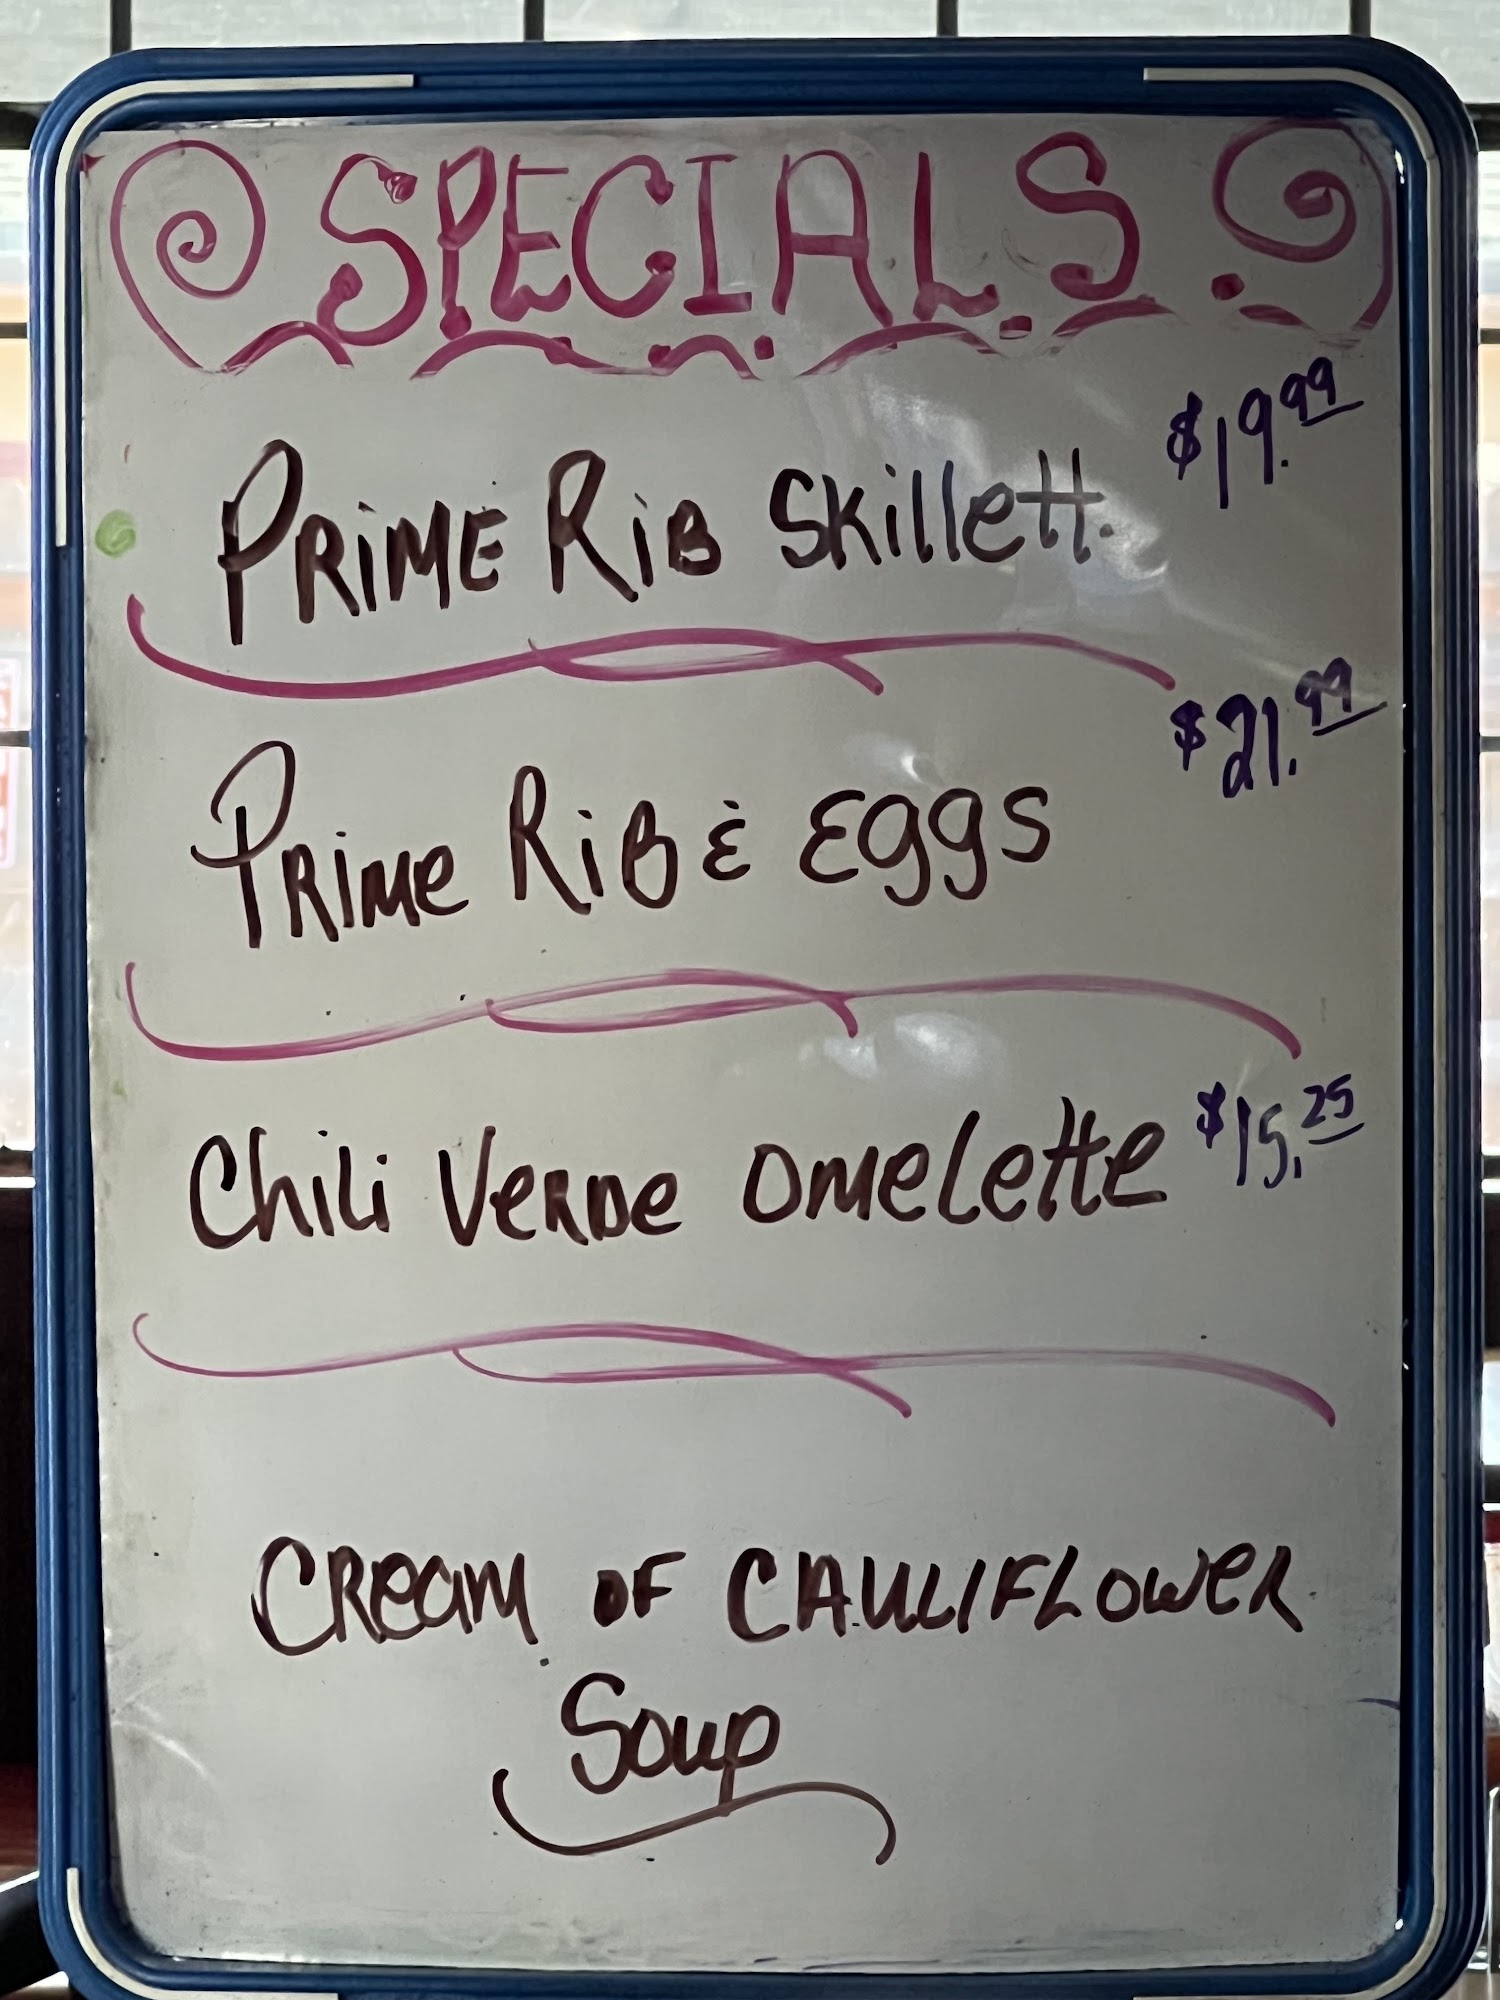 SPECIALS
$19.99
PRiME RiB Skillett
$21.99
PRime RiB & Eggs
$15.25
Chili VeRDe OMeLette
CReam OF CAULIFLOWeR
Soup